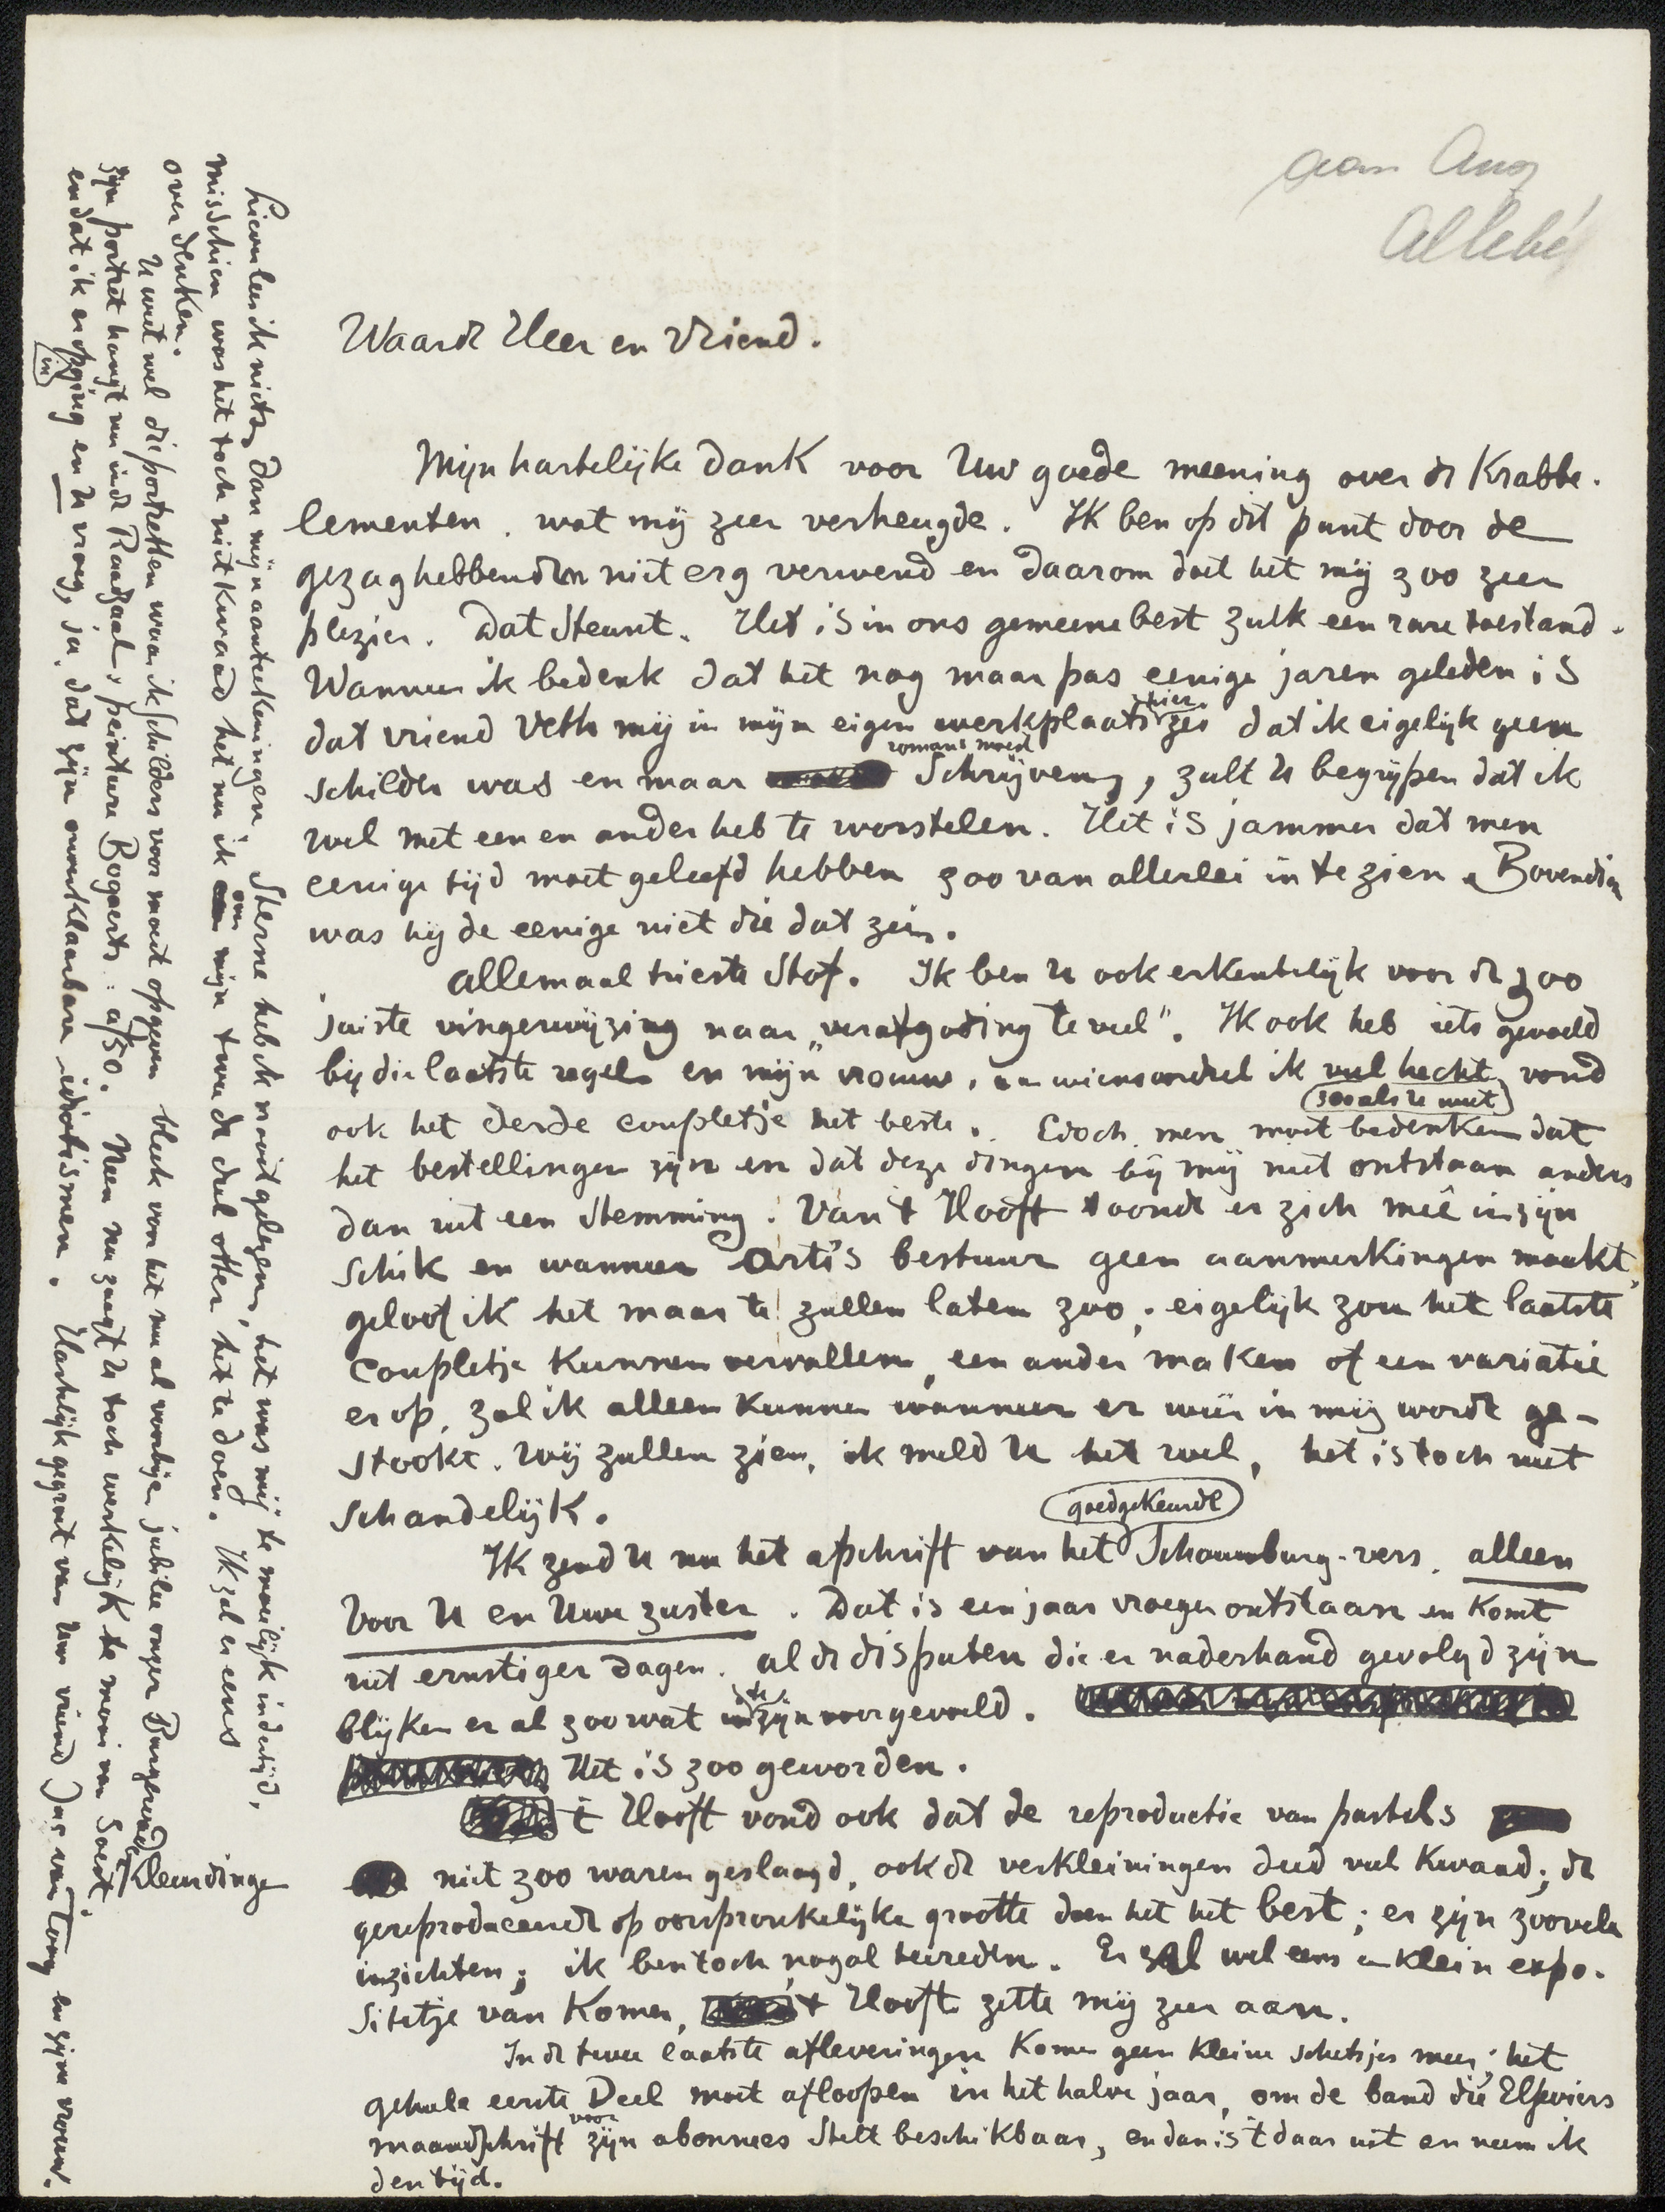 aan Aug
Allebé
Waarde Heer en Vriend.
Mijn hartelijke dank voor Uw goede meening over de Krabbe-
lementen. wat mij zeer verheugde. Ik ben op dit punt door de
gezaghebbenden niet erg verwend en daarom doet het mij zoo zeer
plezier. Dat steunt. Het is in ons gemeenebest zulk een rare toestand.
Wanneer ik bedenk dat het nog maar pas eenige jaren geleden is
dat vriend Veth mij in mijn eigen werkplaats hier zei dat ik eigelijk geen
schilder was en maar romans moest schrijven, zult U begrijpen dat ik
wel met een en ander heb te worstelen. Het is jammer dat men
eenige tijd moet geleefd hebben zoo van allerlei in te zien. Bovendien
was hij de eenige niet die dat zei.
allemaal trieste stof. Ik ben U ook erkentelijk voor de zoo
juiste vingerwijzing naar „verafgoding te veel". Ik ook heb iets gevoeld
bij die laatste regels en mijn vrouw, aan wiens oordeel ik veel hecht, vond
ook het derde coupletje het beste. Edoch men moet (zooals U weet) bedenken dat
het bestellingen zijn en dat deze dingen bij mij niet ontstaan anders
dan uit een stemming. Van 't Hooft toonde er zich meê in zijn
schik en wanneer Arti's bestuur geen aanmerkingen maakt,
geloof ik het maar te zullen laten zoo; eigelijk zou het laatste
coupletje kunnen vervallen, een ander maken of een variatie
er op, zal ik alleen kunnen wanneer er weer in mij wordt ge-
stookt. Wij zullen zien, ik meld U het wel, het is toch niet
schandelijk.
Ik zend U nu het afschrift van het goedgekeurde Schouwburg-vers. alleen
voor U en Uwe zuster. Dat is een jaar vroeger ontstaan en komt
uit ernstiger dagen. al de disputen die er naderhand gevolgd zijn
blijken er al zoo wat in te zijn voorgevoeld.
Het is zoo geworden.
't Hooft vond ook dat de reproductie van pastels
niet zoo waren geslaagd, ook de verkleiningen deed veel kwaad; de
gereproduceerde op oorspronkelijke grootte doen het het best; er zijn zoovele
inzichten; ik ben toch nogal tevreden. Er zal wel eens een klein expo-
sitietje van komen, 't Hooft zette mij zeer aan.
In de twee laatste afleveringen komen geen kleine schetsjes meer; het
geheele eerste Deel moet afloopen in het halve jaar, om de band die Elseviers
maandschrift voor zijn abonnees stelt beschikbaar, en dan is 't daar uit en neem ik
den tijd.
hierin lees ik niets dan mijn aanteekeningen. Sterne heb ik nooit gelezen, het was mij te moeilijk indertijd,
misschien was het toch niet kwaad het nu ik om mijn twee de deel otter het te doen. Ik zal er eens
over denken.
U weet wel die portretten waar ik schilders voor moest opgeven bleek voor het nu al voorbije jubilee onzer Burgerend
Kleurdinge
zijn portret hangt nu in de Raadzaal, peinture Bogaerts: a ƒ50. Neen nu zaagt U toch werkelijk te mooi van Soest.
en dat ik er in opging en U vroeg, ja, dat zijn onverklaarbare idiotismen. Hartelijk gegroet van Uw vriend Jac van Tooy en zijne vrouw.